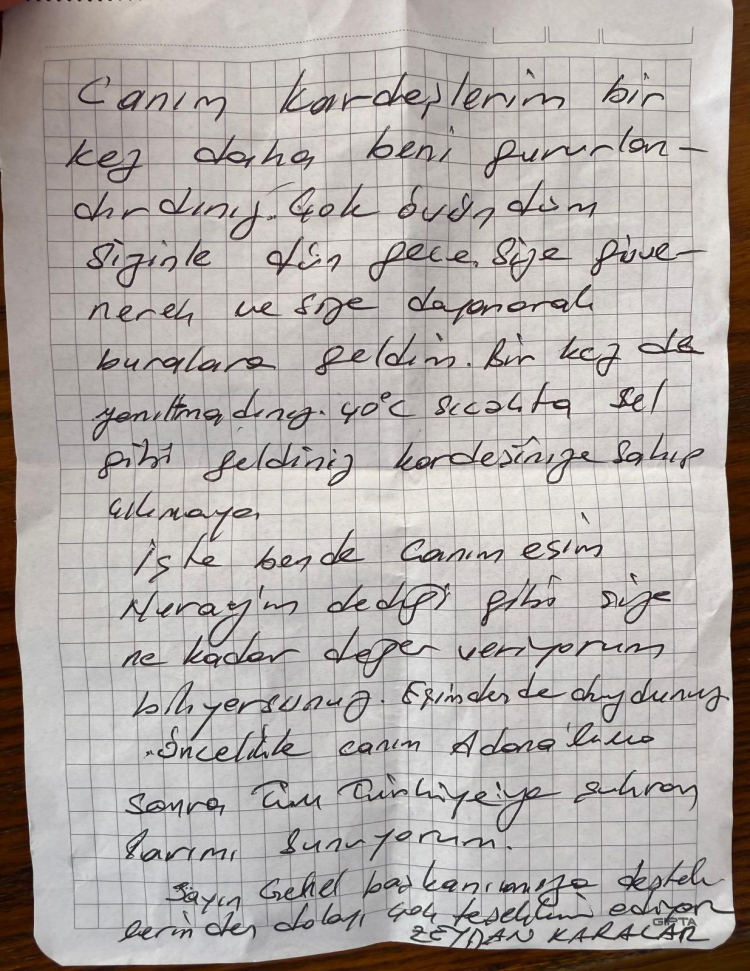 Canım kardeşlerim bir
kez daha beni gururlan-
dırdınız. Çok övündüm
sizinle dün gece. Size güve-
nerek ve size dayanarak
buralara geldim. Bir kez de
yanıltmadınız. 40°C sıcakta sel
gibi geldiniz kardeşinize sahip
çıkmaya.
İşte bende canım eşim
Nuray'ın dediği gibi size
ne kadar değer veriyorum
biliyorsunuz. Eşimden de duydunuz
Öncelikle canım Adana'lılara
sonra tüm Türkiye'ye şükran
larımı sunuyorum.
Sayın Genel başkanımıza destek
lerinden dolayı çok teşekkür ediyor
GIPTA
ZEYDAN KARALAR